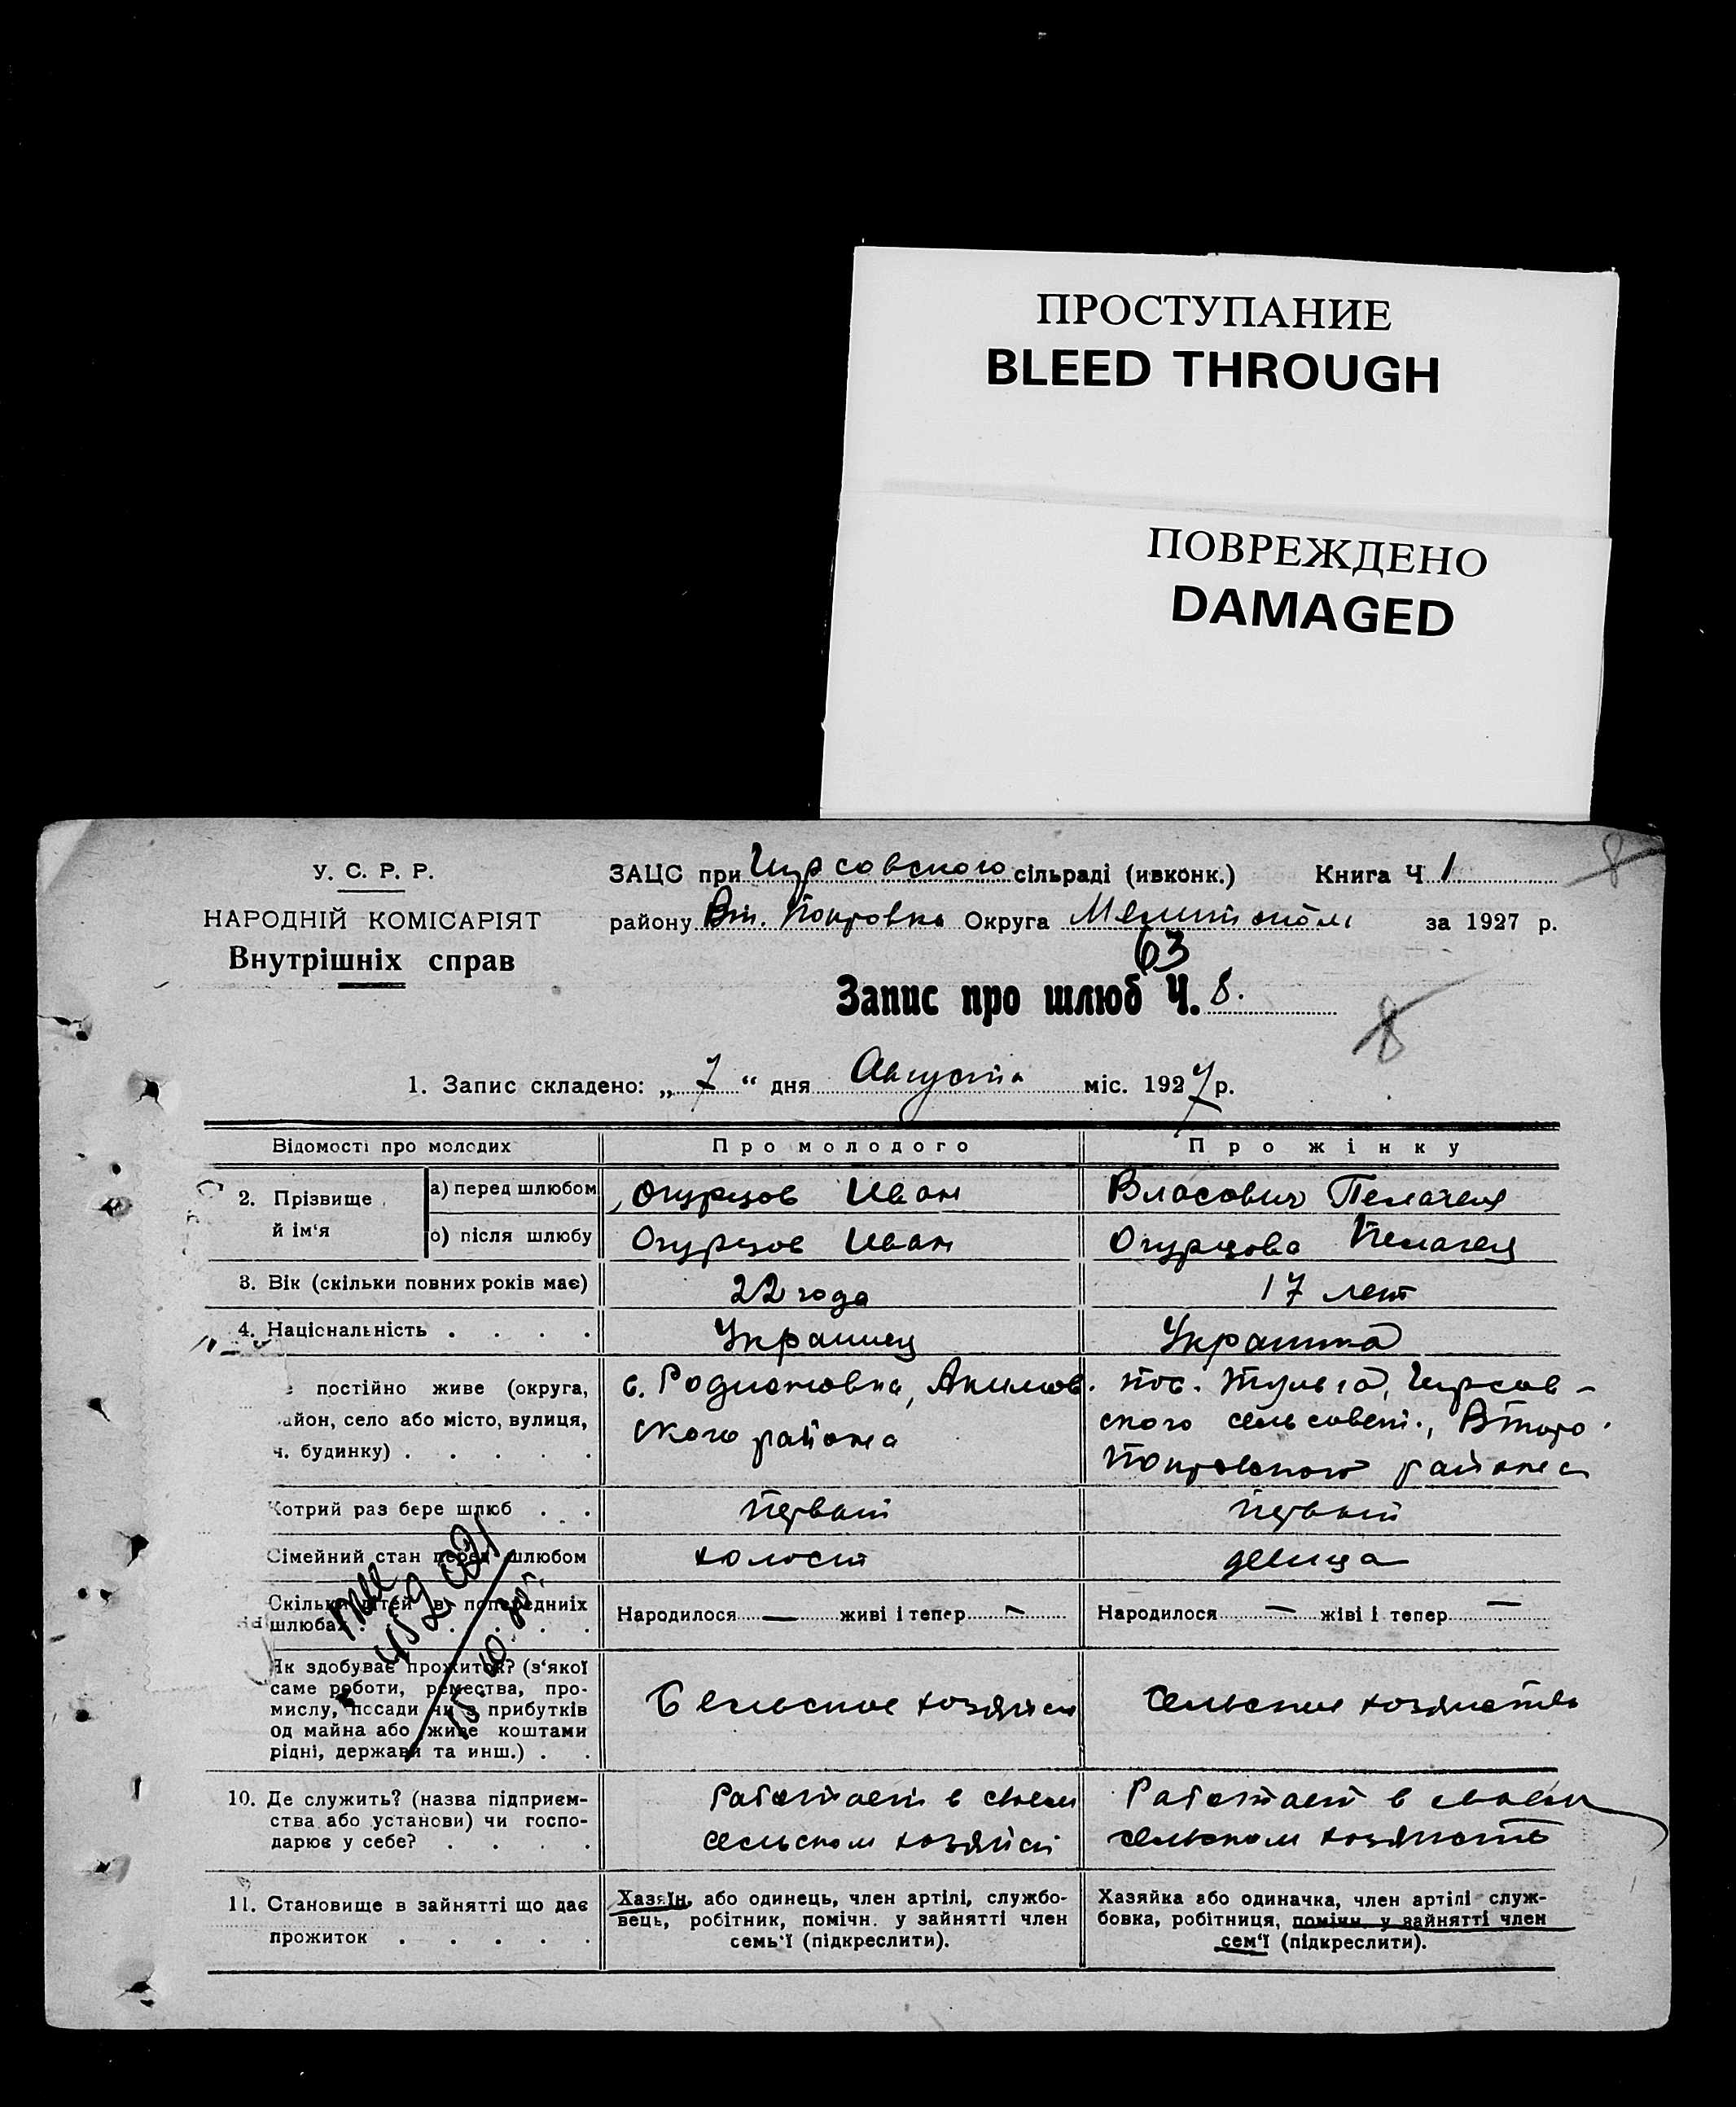 ПРОСТУПАНИЕ
BLEED THROUGH
ПОВРЕЖДЕНО
DAMAGED
8
У. С. Р. Р.
НАРОДНІЙ КОМІСАРІЯТ
Внутрішніх справ
ЗАЦС при Чурсовского сільраді (ивконк.) Книга Ч 1
району Вт. Покровка Округа Мелитополь за 1927 р.
63
Запис про шлюб Ч. 8.
8
1. Запис складено: „ 7 “ дня Августа міс. 1927 р.
Відомості про молодих Про молодого Про жінку
2. Прізвище й ім‘я
а) перед шлюбом Огурцов Иван Власович Пелагея
о) після шлюбу Огурцов Иван Огурцова Пелагея
3. Вік (скільки повних років має) 22 года 17 лет
4. Національність . . . . Украинец Украинка
постійно живе (округа, с. Родионовка, Акимов. пос. Тульга, Чурсов-
айон, село або місто, вулиця, ского района ского сельсовет., Второ.
ч. будинку) . . . . . Покровского района
Котрий раз бере шлюб . . Первый Первый
Сімейний стан перед шлюбом холост девица
Скільки дітей в попередніх Народилося — живі і тепер — Народилося — жіві і тепер —
шлюбах . . . . . .
Як здобуває прожиток? (з‘якої
саме роботи, ремества, про-
мислу, посади чи з прибутків Сельское хозяйст Сельское хозяйство
од майна або живе коштами
рідні, держави та инш.) . .
10. Де служить? (назва підприєм- Работает в своем Работает в своем
ства або установи) чи госпо- сельском хозяйст сельском хозяйстве
дарює у себе? . . . .
11. Становище в зайнятті що дає Хазяїн, або одинець, член артілі, службо- Хазяйка або одиначка, член артілі служ-
вець, робітник, помічн. у зайнятті член бовка, робітниця, помічн. у зайнятті член
прожиток . . . . . семь‘ї (підкреслити). сем‘ї (підкреслити).